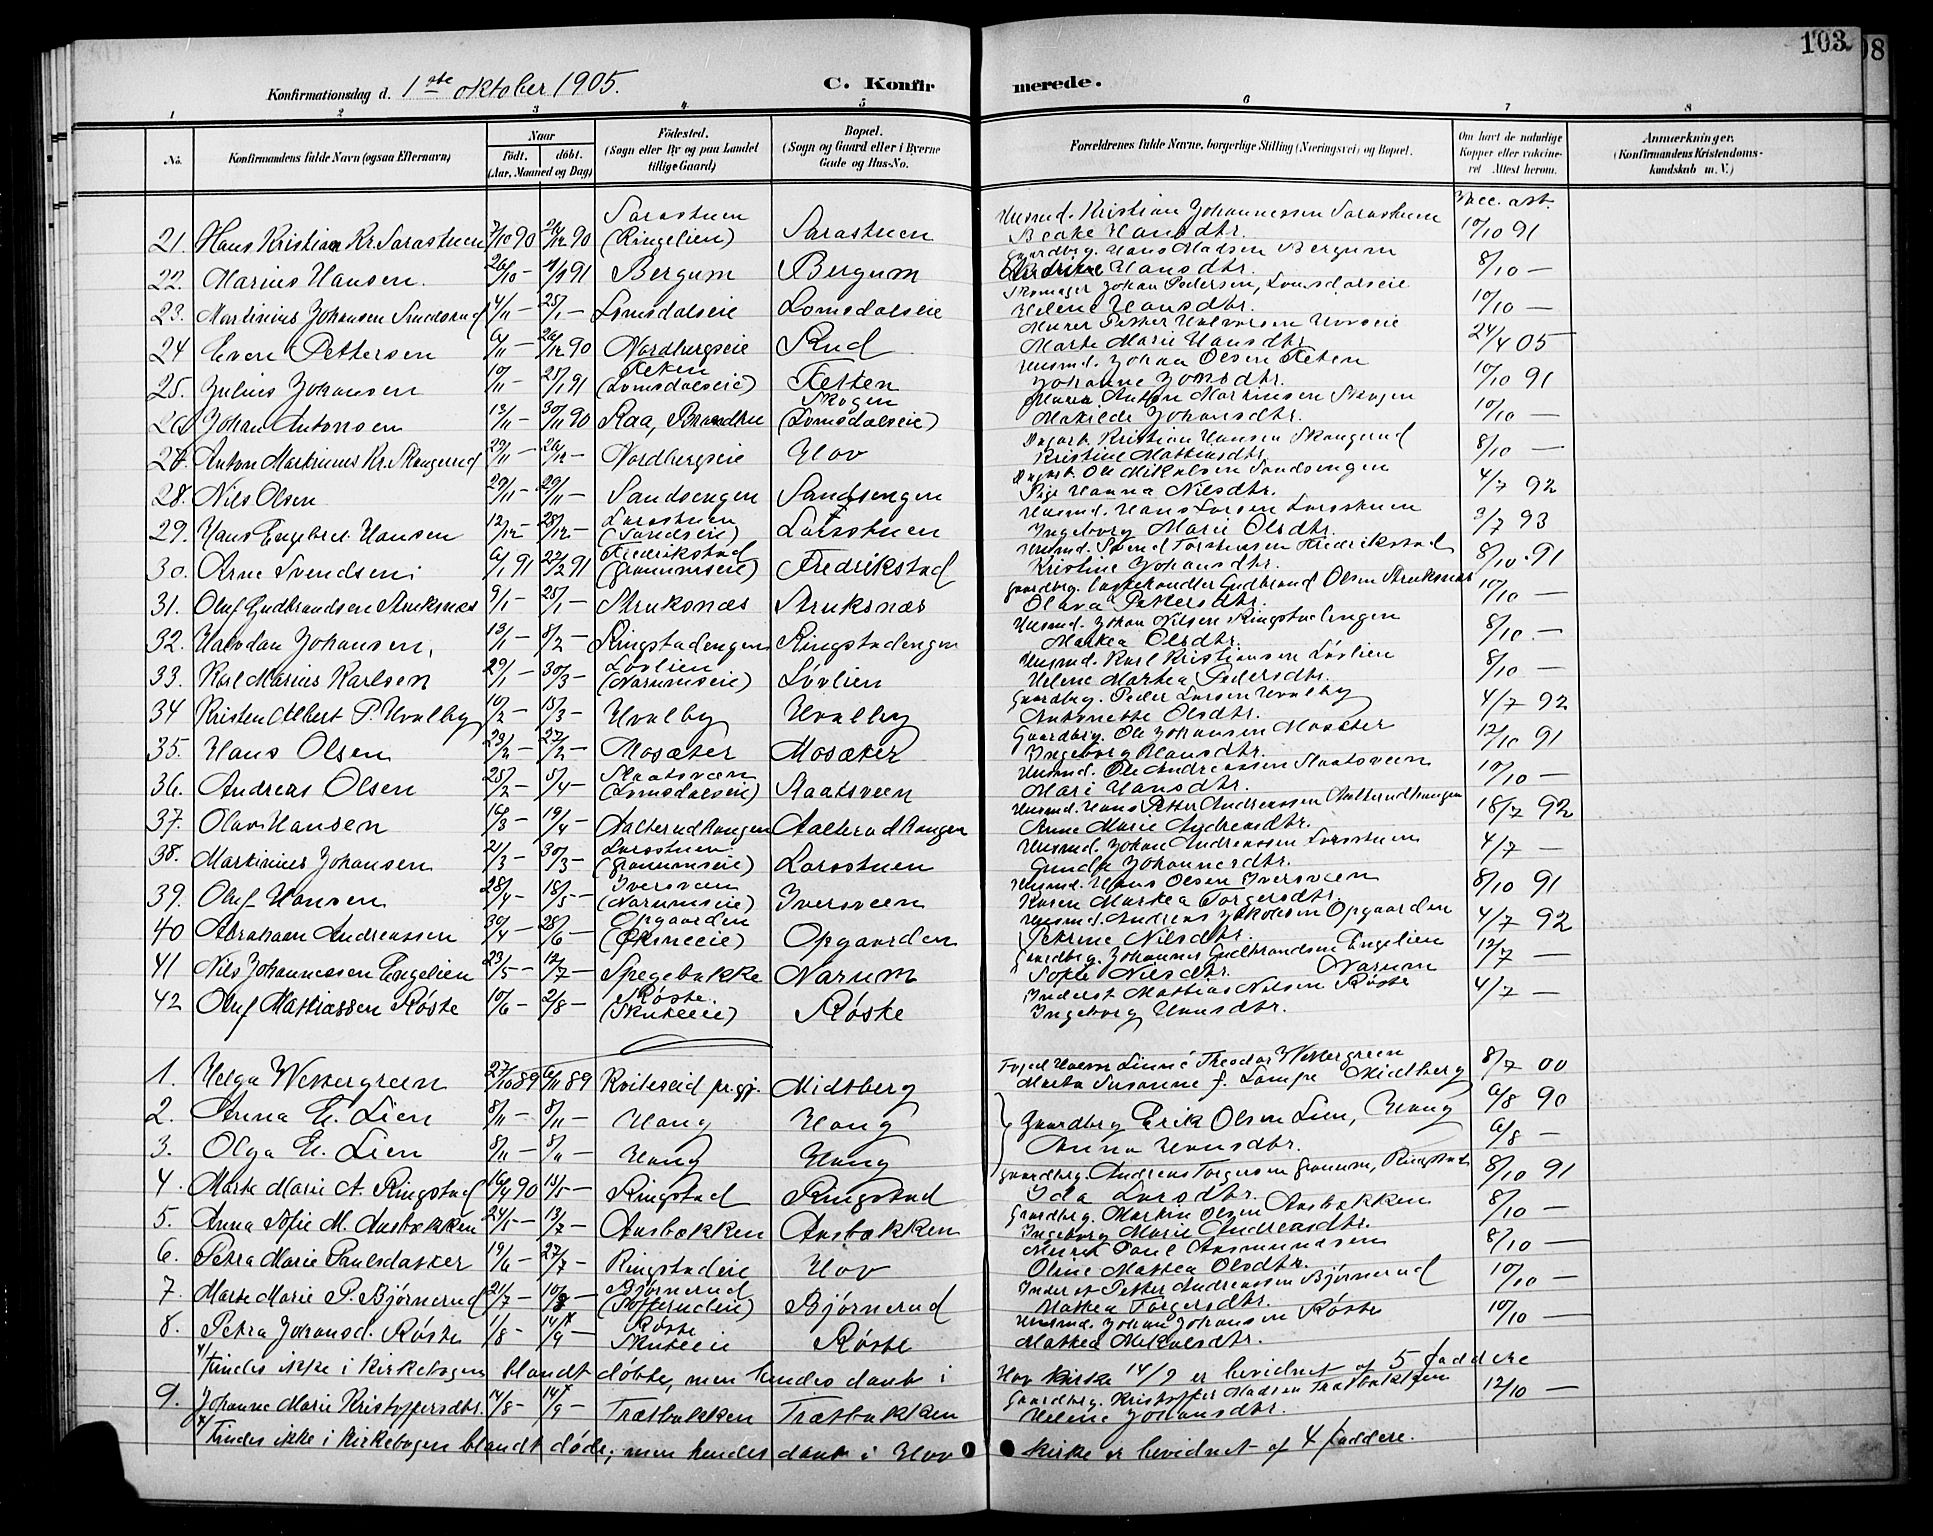 103
Konfirmationsdag d. 1ste oktober 1905.
C. Konfirmerede.
1 2 3 4 5 6 7 8
No.
Konfirmandens fulde Navn (ogsaa Efternavn)
Naar
født. døbt.
(Aar, Maaned og Dag)
Fødested.
(Sogn eller By og paa Landet tillige Gaard)
Bopæl.
(Sogn og Gaard eller i Byerne Gade og Hus-No.
Forældrenes fulde Navne, borgerlige Stilling (Næringsvei) og Bopæl.
Om havt de naturlige Kopper eller vakcineret Attest herom.
Anmærkninger.
(Konfirmandens Kristendomskundskab m. V.)
Vacc. att.
21. Hans Kristian Kr. Sarastuen 7/10 90 26/12 90 Sarastuen (Ringelien) Sarastuen Husmd. Kristian Johannessen Sarastuen Beate Hansdtr. 10/10 91
22. Marius Hansen. 26/10 — 4/1 91 Bergum Bergum Gaardbrg. Hans Madsen Bergum Hansdtr. 8/10 —
23. Martinius Johansen 4/11 — 25/1 — Lomsdalseie Lomsdalseie Skomager Johan Pedersen, Lomsdalseie Helene Hansdtr. 10/10 —
24 Even Pettersen 6/11 — 26/12 90 Nordbergseie Rud Murer Petter Halvorsen Hovseie Marte Marie Hansdtr 24/4 05
25. Julius Johansen 10/11 — 25/1 91 Teten (Lomsdalseie) Tetten Husmd. Johan Olsen Teten Johanne Jonsdtr. 10/10 91
26 Johan Antonsen 13/11 — 30/11 90 Raa, Brandbu Skogen (Lomsdalseie) Anton Martinsen Skogen Matilde Johansdtr. 10/10 —
27. Anton Martinius Kr. Skangerud 23/11 — 26/12 — Nordbergseie Hov Dagarb. Kristian Hansen Skangerud Kristine Mathiasdtr. 8/10 —
28. Nils Olsen 29/11 — 29/11 — Sandsengen Sandsengen Dagarb. Ole Mikalsen Sandsengen Pige Hanna Nilsdtr. 4/7 92
29. Hans Engebret. Hansen 12/12 — 28/12 — Larsstuen (Sandseie) Larsstuen Husmd. Hans Larsen Larsstuen Ingeborg Marie Olsdtr. 3/7 93
30. Arne Svendsen 6/1 91 22/2 91 Fredrikstad (Granumseie) Fredrikstad Husmd. Svend Torstensen Fredrikstad Kristine Johansdtr. 8/10 91
31. Oluf Gudbrandsen Struksnæs 9/1 — 25/1 — Struksnæs Struksnæs Gaardbrg. Gudbrand Olsen Struksnæs Olava Pettersdtr. 10/10 —
32. Halvdan Johansen, 13/1 — 8/2 — Ringstadengen Ringstadengen Husmd. Johan Nilsen Ringstadengen Mathea Olsdtr. 8/10 —
33. Karl Marius Karlsen 29/1 — 30/3 — Løvlien (Narumseie) Løvlien Husmd. Karl Kristiansen Løvlien Helene Marthea Pedersdtr. 8/10 —
34 Kristen Albert P. Hvalby 10/2 — 15/3 — Hvalby Hvalby Gaardbrg. Peder Larsen Hvalby Antonette Olsdtr. 4/7 92
35. Hans Olsen 23/2 — 27/2 — Mosæter Mosæter Gaardbrg. Ole Johansen Mosæter Ingeborg Hansdtr. 12/10 91
36. Andreas Olsen 25/2 — 5/4 — Staatsveen (Lomsdalseie) Staatsveen Husmd. Ole Andreassen Staatsveen Mari Hansdtr. 10/10 —
37. Olav Hansen 16/3 — 19/4 — Aalterudhaugen Aalterudhaugen Husmd. Hans Petter Andreassen Aalterudhaugen Anne Marie Andreasdtr. 18/7 92
38. Martinius Johansen 21/3 — 30/3 — Larsstuen (Granumseie) Larsstuen Husmd. Johan Andreassen Larsstuen Gunda Johannesdtr. 4/7 —
39. Oluf Hansen 28/4 — 18/5 — Iversveen (Narumseie) Iversveen Husmd. Hans Olsen Iversveen Karen Marthea Torgersdtr. 8/10 91
40 Abraham Andreassen 30/4 — 28/6 — Opgaarden (Øksneeie) Opgaarden Husmd. Andreas Jakobsen Opgaarden Petrine Nilsdtr. 4/7 92
41 Nils Johannessen Engelien 23/5 — 12/7 — Spegebakke Narum Gaardbrg. Johannes Gudbrandsen Engelien Sofie Nilsdtr. Narum 12/7 —
42 Oluf Mathiassen Røste 10/6 — 2/8 — Røste (Skuteeie) Røste Inderst Mathias Nilsen Røste Ingeborg Hansdtr. 4/7 —
1. Helga Westergreen 27/10 89 6/11 89 Kviteseid pr.gj. Midtberg Foged Halvor Linné Theodor Westergreen Marta Susanne f. Lampe Midtberg 8/7 00
2. Anna E. Lien 8/11 — 8/11 — Haug Haug Gaardbrg Erik Olsen Lien, Haug 6/8 90
3. Olga E. Lien 8/11 — 8/11 — Haug Haug Anna Hansdtr. 6/8 —
4. Marte Marie A. Ringstad 16/4 90 15/5 — Ringstad Ringstad Gaardbrg. Andreas Torgersen Granum, Ringstad Ida Larsdtr. 8/10 91
5. Anna Sofie M. Aasbækken 24/5 — 13/7 — Aasbækken Aasbækken Gaardbrg. Martin Olsen Aasbækken Ingeborg Marie Andreasdtr. 8/10 —
6. Petra Marie Paulsdatter 19/6 — 27/7 — Ringstadeie Hov Murer Paul Aasmundsen Oline Mathea Olsdtr. 8/10 —
7. Marte Marie P. Bjørnerud 21/7 — 10/8 — Bjørnerud (Tofterudeie) Bjørnerud Inderst Petter Andreassen Bjørnerud Mathea Torgersdtr. 10/10 —
8. Petra Johansd. Røste 1/8 — 14/9 x — Røste Skuteeie Røste Husmd. Johan Johansen Røste Mathea Mikalsdtr. 10/10 —
x/ Findes ikke i kirkebogen blandt døbte, men hendes daab i Hov kirke 14/9 er bevidnet af 5 faddere
9. Johanne Marie Kristoffersdtr. 14/8 — 14/9 x — Trætbakken Trætbakken Gaardbrg. Kristoffer Madsen Trætbakken Helene Johansdtr. 12/10 —
x/ Findes ikke i kirkebogen blandt døbte, men hendes daab i Hov kirke er bevidnet af 4 faddere.